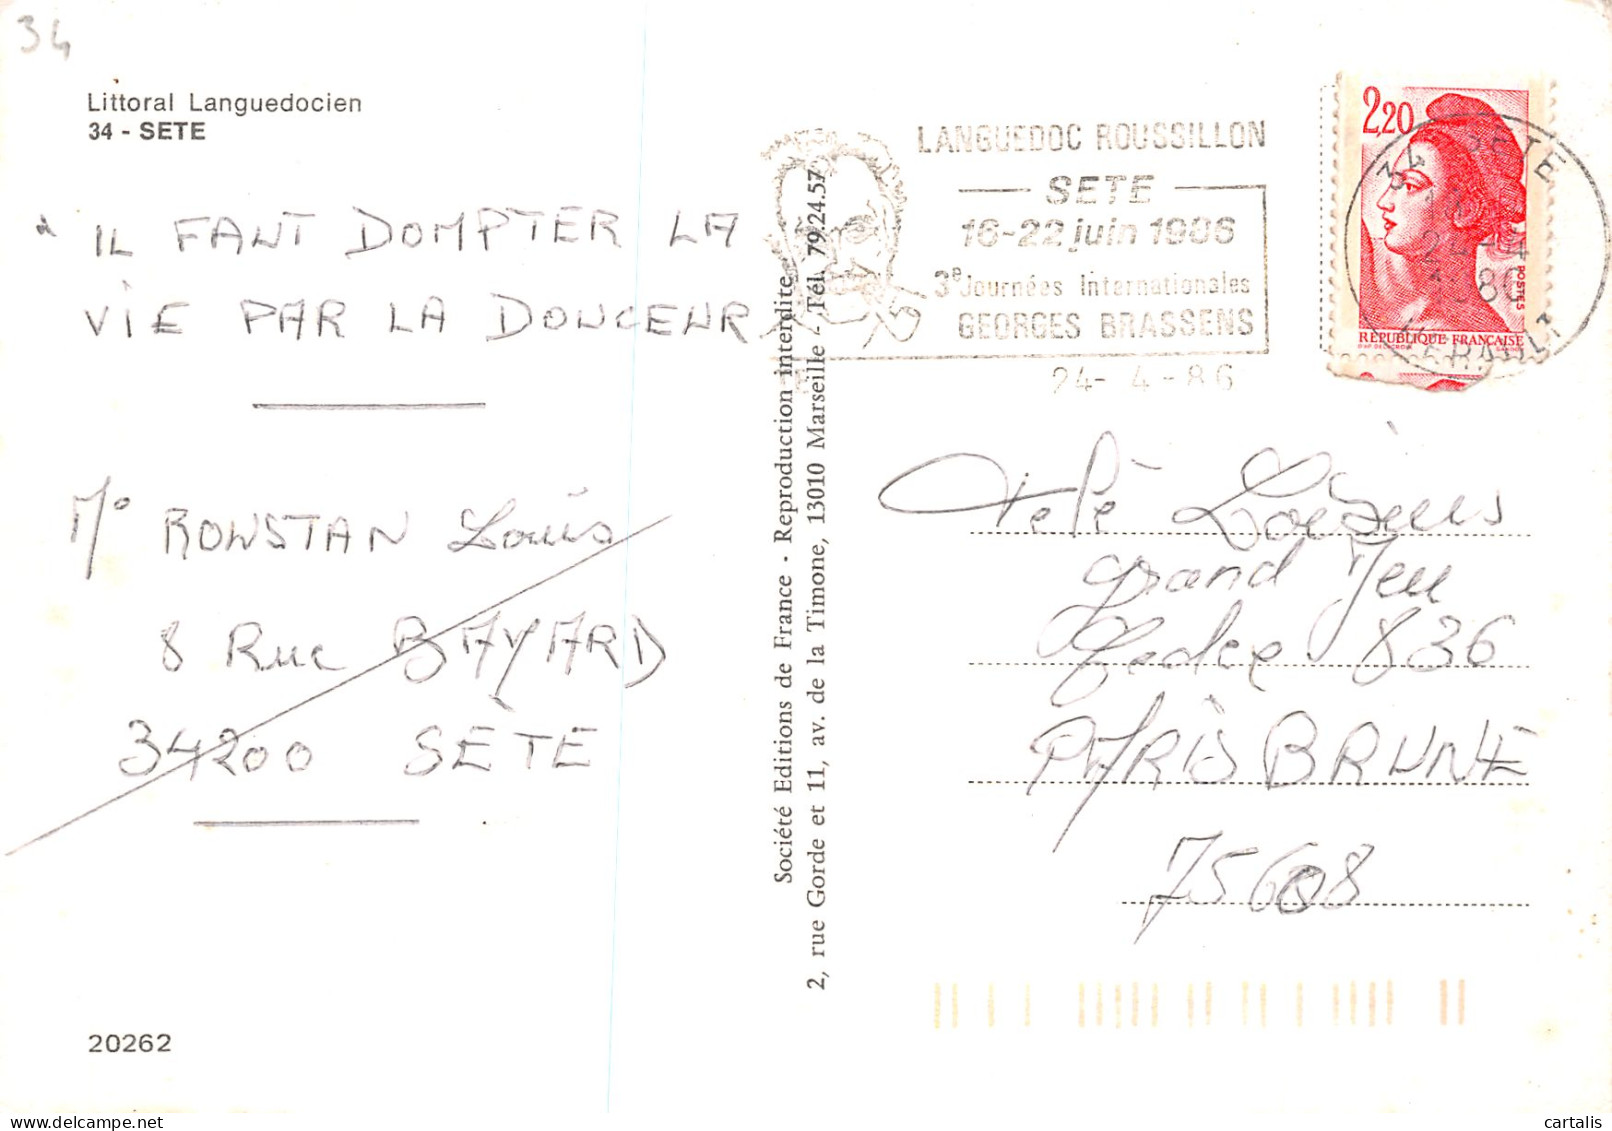 34
Littoral Languedocien
34 - SETE
" IL FAUT DOMPTER LA
VIE PAR LA DOUCEUR
Mº ROUSTAN Louis
8 Rue BAYARD
34200 SETE
20262
Société Editions de France - Reproduction interdite
2, rue Gorde et 11, av. de la Timone, 13010 Marseille - Tél. 79.24.57
LANGUEDOC ROUSSILLON
SETE
16-22 juin 1986
3e Journées Internationales
GEORGES BRASSENS
24- 4 -86
2,20
POSTES
REPUBLIQUE FRANÇAISE
34 SETE
HERAULT
Télé Loisirs
grand Jeu
Cedex 836
PARIS BRUNE
75608
cartalis